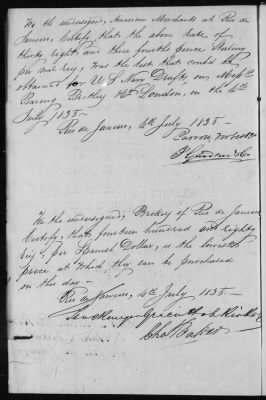 We the undersigned, American Merchants at Rio de
Janeiro, Certify, that the above Rate, of
thirty eight, and three fourths pence Sterling
per mil reis, was the best that could be
obtained for U S Navy Drafts, on Mess
Baring Brothers & Co London, on the 4th
July 1835 -
Rio de Janeiro, 4th July 1835 -
We the undersigned, Brokers of Rio de Janeiro
Certify, that fourteen hundred and eighty
reis, per Spanish Dollar, is the lowest
price at which they can be purchased
on this day -
Rio de Janeiro, 4th July 1835 -
Chas Baker